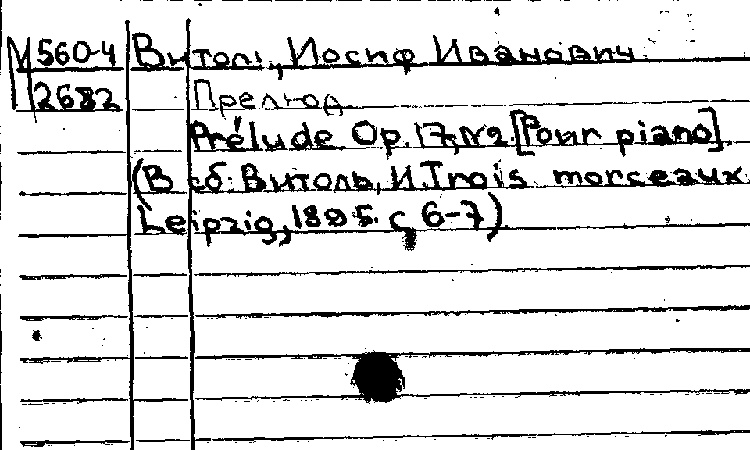 М 560-4 Витоль, Иосиф Иванович
2682 Прелюд
Prélude Op. 17, №2 [Pour piano].
(В сб: Витоль, И. Trois morceaux
Leipzig, 1895. с 6-7)